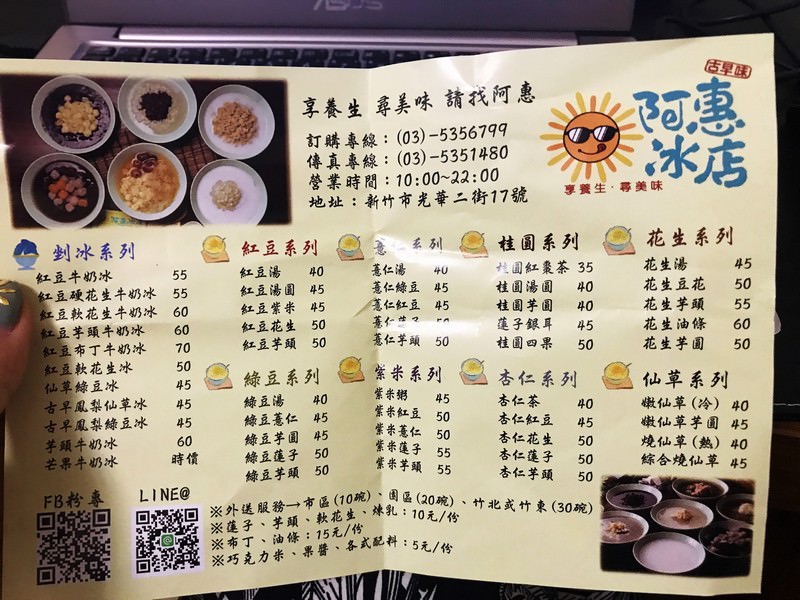 ASUS
古早味
阿惠
冰店
享養生·尋美味
享養生 尋美味 請找阿惠
訂購專線：(03)-5356799
傳真專線：(03)-5351480
營業時間：10:00~22:00
地址：新竹市光華二街17號
剉冰系列
紅豆牛奶冰 55
紅豆硬花生牛奶冰 55
紅豆軟花生牛奶冰 60
紅豆芋頭牛奶冰 60
紅豆布丁牛奶冰 70
紅豆軟花生冰 50
仙草綠豆冰 45
古早鳳梨仙草冰 45
古早鳳梨綠豆冰 45
芋頭牛奶冰 60
芒果牛奶冰 時價
紅豆系列
紅豆湯 40
紅豆湯圓 45
紅豆紫米 45
紅豆花生 50
紅豆芋頭 50
綠豆系列
綠豆湯 40
綠豆薏仁 45
綠豆芋圓 45
綠豆蓮子 50
綠豆芋頭 50
薏仁系列
薏仁湯 40
薏仁綠豆 45
薏仁紅豆 45
薏仁蓮子 50
薏仁芋頭 50
紫米系列
紫米粥 45
紫米紅豆 50
紫米薏仁 50
紫米蓮子 55
紫米芋頭 55
桂圓系列
桂圓紅棗茶 35
桂圓湯圓 40
桂圓芋圓 40
蓮子銀耳 45
桂圓四果 50
杏仁系列
杏仁茶 40
杏仁紅豆 45
杏仁花生 50
杏仁蓮子 50
杏仁芋頭 50
花生系列
花生湯 45
花生豆花 50
花生芋頭 55
花生油條 60
花生芋圓 50
仙草系列
嫩仙草(冷) 40
嫩仙草芋圓 45
燒仙草(熱) 40
綜合燒仙草 45
FB粉專
LINE@
※外送服務→市區(10碗)、園區(20碗)、竹北或竹東(30碗)
※蓮子、芋頭、軟花生、煉乳：10元/份
※布丁、油條：15元/份
※巧克力米、果醬、各式配料：5元/份